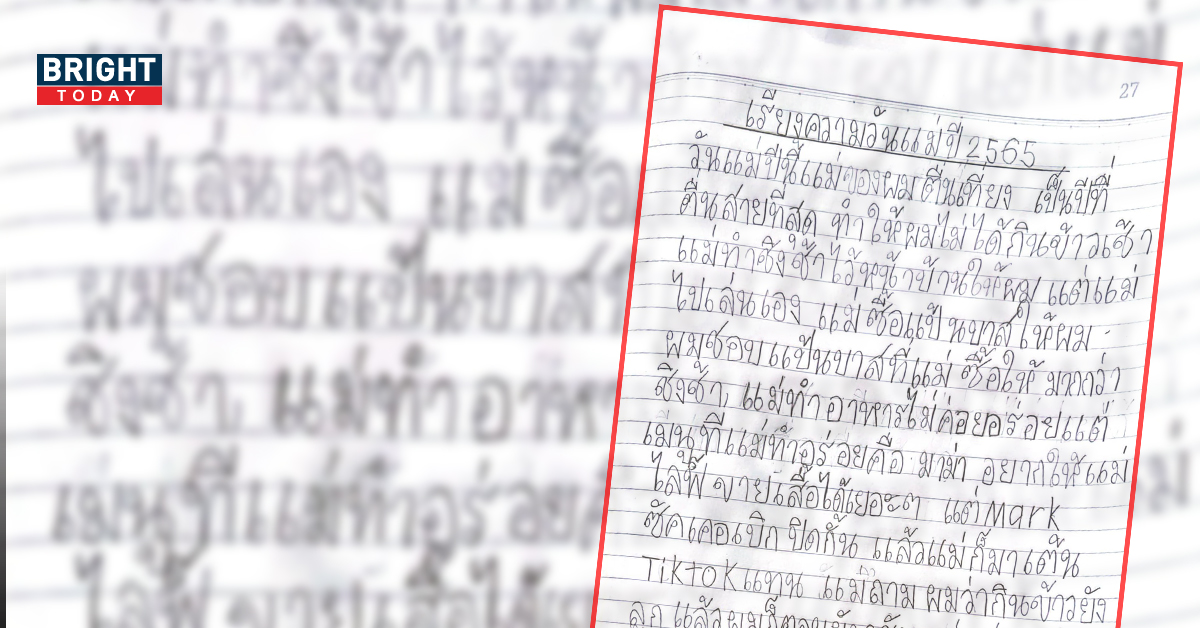 BRIGHT
TODAY
27
เรียงความวันแม่ปี 2565
วันแม่ปีนี้แม่ของผมตื่นเที่ยง เป็นปีที่
ตื่นสายที่สุด ทำให้ผมไม่ได้กินข้าวเช้า
แม่ทำชิงช้าไว้หน้าบ้านให้ผม แต่แม่
ไปเล่นเอง แม่ซื้อแป้นบาสให้ผม
ผมชอบแป้นบาสที่แม่ซื้อให้มากกว่า
ชิงช้า, แม่ทำอาหารไม่ค่อยอร่อยแต่
เมนูที่แม่ทำอร่อยคือ มาม่า อยากให้แม่
ไลฟ์ขายเสื้อได้เยอะๆ แต่ Mark
ซัคเคอเบิก ปิดกั้น แล้วแม่ก็มาเต้น
Tiktok แทน แม่ถามผมว่ากินข้าวยัง
ลูก แล้วผมก็